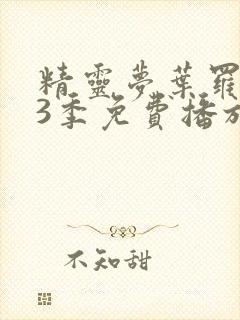 精靈夢葉羅
3季免費播放
不知甜